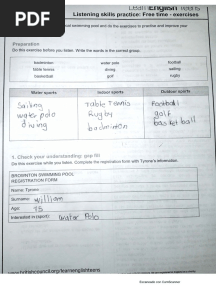 PDF
LearnEnglish Teens
Listening skills practice: Free time - exercises
Preparation
Do this exercise before you listen. Write the words in the correct group.
badminton water polo football
table tennis diving sailing
basketball golf rugby
Water sports Indoor sports Outdoor sports
Sailing Table Tennis Football
water polo Rugby golf
diving badminton basketball
1. Check your understanding: gap fill
Do this exercise while you listen. Complete the registration form with Tyrone's information.
BROWNTON SWIMMING POOL
REGISTRATION FORM
Name: Tyrone
Surname: william
Age: 15
Interested in (sport): water Polo
Escaneado con CamScanner